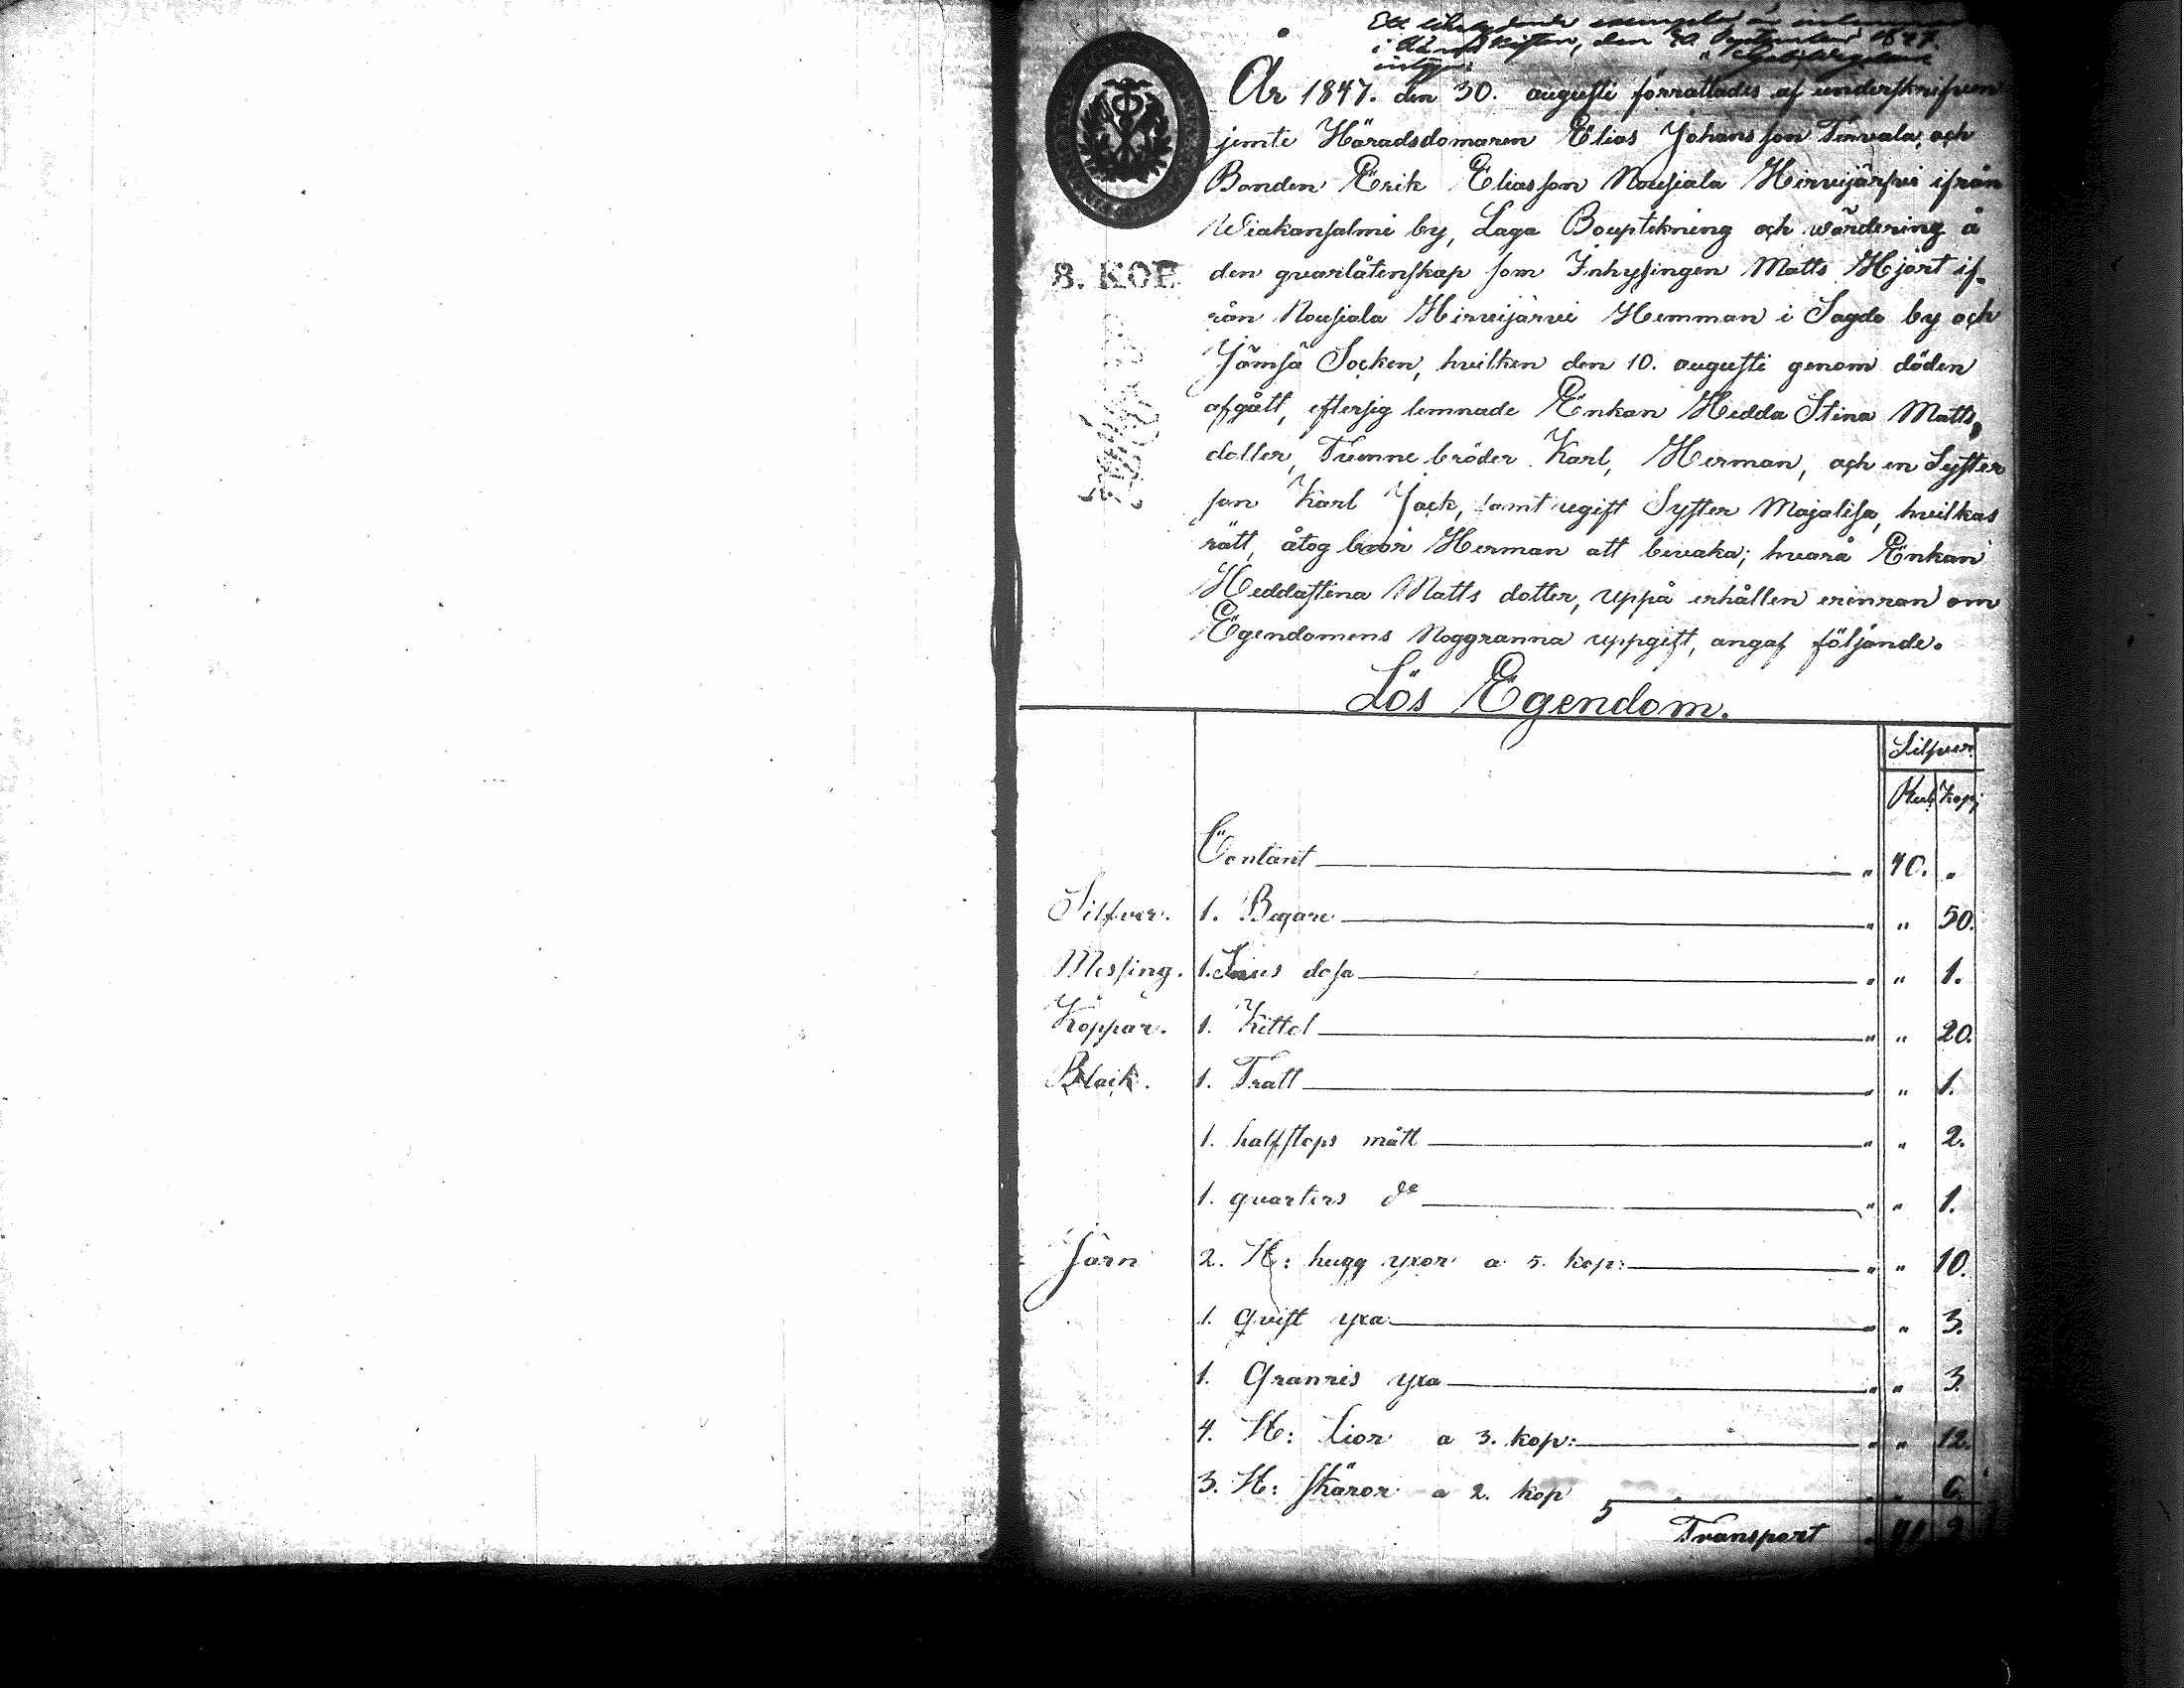 Ett exemplar är
i den 30 September 1847.
År 1847. den 30. augusti förrättades af underskrifven
jemte Häradsdomaren Elias Johansson Tervala, och
Bonden Erik Eliasson Nousiala Hirvijärfvi ifrån
Wiakansalmi by, Laga Bouptekning och wärdering å
den qvarlåtenskap som Inhysingen Matts Hjort if-
rån Nousiala Hirvijärvi Hemman i Sagdo by och
Jämsä Socken, hvilken den 10. augusti genom döden
afgått, eftersig lemnade Enkan Hedda Stina Matts,
dotter, Tvenne bröder Karl, Herman, och en Syster
son Karl Jack, samt ugift Syster Majalisa, hvilkas
rätt, åtog bror Herman att bevaka; hvarå Enkan
Heddastina Matts dotter, uppå erhållen erinran om
Egendomens Noggranna uppgift, angaf följande.
8. KOP.
Lös Egendom.
Silfver
Rub Kop
Contant " 40. "
Silfver. 1. Begare " " 50.
Messing. 1. Snus dosa " " 1.
Koppar. 1. Kittel " " 20.
Bläck. 1. Tratt " " 1.
1. halfstops mått " " 2.
1. quarters do " " 1.
Järn 2. St: hugg yxor a 5. kop: " " 10.
1. Qvist yxa " " 3.
1. Granris yxa " " 3.
4. St: Lior a 3. kop: " " 12.
3. St: skäror a 2. kop " " 6.
Transport " 41 9